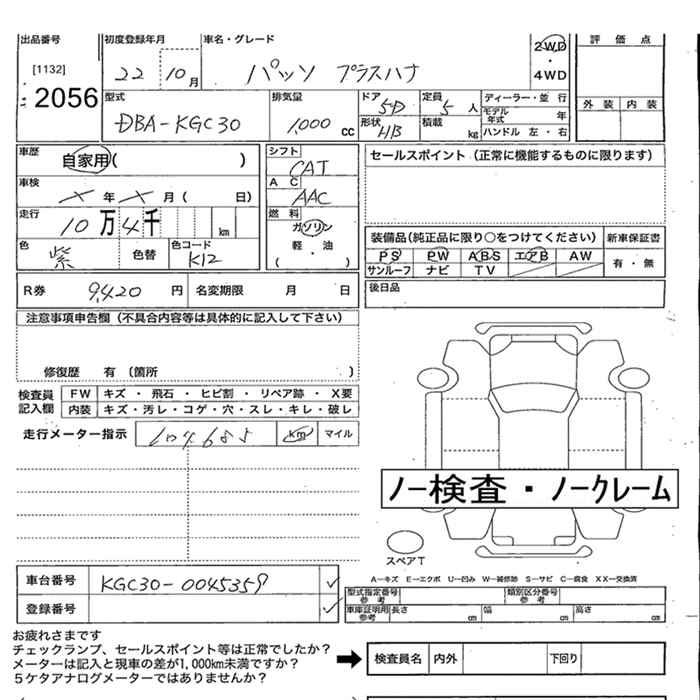 出品番号 初度登録年月 車名・グレード 2WD 評価点
[1132] 22 10月 パッソ プラスハナ 4WD
2056 型式 排気量 ドア 5D 定員 5人 ディーラー・並行 外装 内装
DBA-KGC30 1,000cc 形状 HB 積載 kg モデル年式 年
ハンドル 左・右
車歴 自家用( ) シフト CAT セールスポイント(正常に機能するものに限ります)
車検 年 月( 日) AC AAC
走行 10万4千 km 燃料 ガソリン
軽・油
( )
装備品(純正品に限り○をつけてください) 新車保証書
色 紫 色替 色コード K12 PS PW ABS エアB AW 有・無
サンルーフ ナビ TV
R券 9,420円 名変期限 月 日 後日品
注意事項申告欄(不具合内容等は具体的に記入して下さい)
修復歴 有(箇所 )
検査員記入欄 FW キズ・飛石・ヒビ割・リペア跡・X要
内装 キズ・汚レ・コゲ・穴・スレ・キレ・破レ
走行メーター指示 104,685 km マイル
ノー検査・ノークレーム
スペアT
A-キズ E-エクボ U-凹み W-補修跡 S-サビ C-腐食 XX-交換済
車台番号 KGC30-0045359
型式指定番号 参考 類別区分番号 参考
登録番号 車庫証明用 参考 長さ cm 幅 cm 高さ cm
お疲れさまです
チェックランプ、セールスポイント等は正常でしたか?
メーターは記入と現車の差が1,000km未満ですか?
5ケタアナログメーターではありませんか?
検査員名 内外 下回り